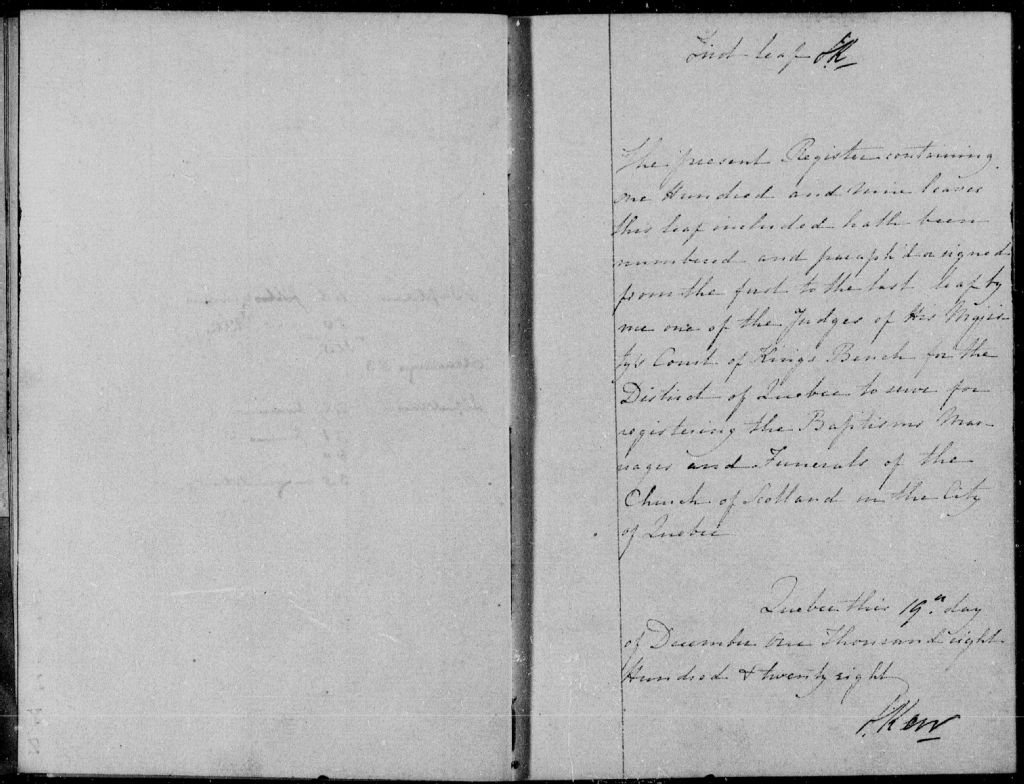 First leaf JK
The present Register containing
one Hundred and nine leaves
this leaf included hath been
numbered and paraph'd a signed
from the first to the last leaf by
me one of the Judges of His Majes
ty's Court of Kings Bench for the
District of Quebec to serve for
registering the Baptisms Mar-
riages and Funerals of the
Church of Scotland in the City
of Quebec
Quebec this 19th day
of December One Thousand eight
Hundred & twenty eight
J. Kerr